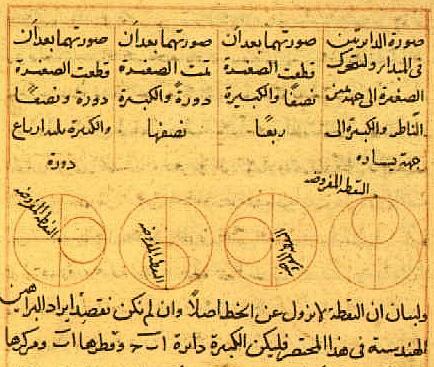 صورة الدايرتين
فى المبدا ولنتحرك
الصغيرة الى جهة يمين
الناظر والكبيرة الى
جهة يساره
صورتهما بعد ان
قطعت الصغيرة
نصفًا والكبيرة
ربعًا
صورتهما بعد ان
تمت الصغيرة
دورةً والكبيرة
نصفها
صورتهما بعد ان
قطعت الصغيرة
دورة ونصفًا
والكبيرة ثلثة ارباع
دورة
النقطة المفروضة
النقطة المفروضة
النقطة المفروضة
ولبيان ان النقطة لا تزول عن الخط اصلاً وان لم نكن نقصد ايراد البراهين
الهندسية فى هذا المختصر فليكن الكبيرة دائرة ا ب وقطرها ا ب ومركزها